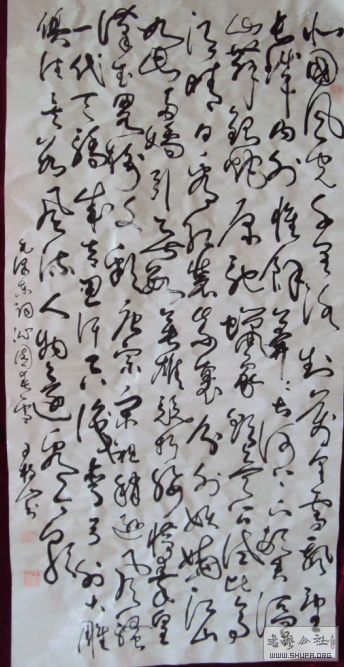 北國風光千里冰封万里雪飘望
长城内外惟餘莽莽大河上下顿失滔滔
山舞銀蛇原驰蠟象欲与天公试比高
须晴日看红装素裹分外妖娆江山
如此多嬌引无数英雄竞折腰惜秦皇
漢武略输文彩唐宗宋祖稍逊风骚
一代天骄成吉思汗只识弯弓射大雕
俱往矣数风流人物还看今朝
毛泽东词沁园春雪
WWW.SHUFA.ORG